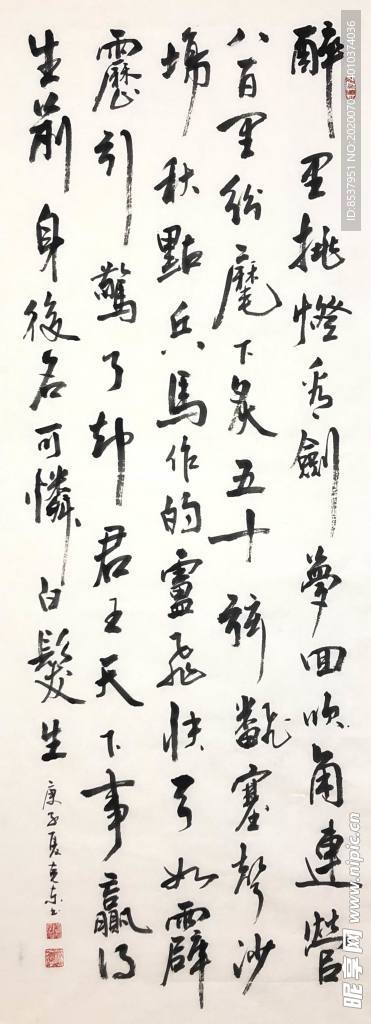 醉里挑燈看劍夢回吹角連營
八百里紛麾下炙五十弦飜塞聲沙
場秋點兵馬作的盧飛快弓如霹
靂引驚了却君王天下事贏得
生前身後名可憐白髮生
庚子夏
昵享网 www.nipic.cn